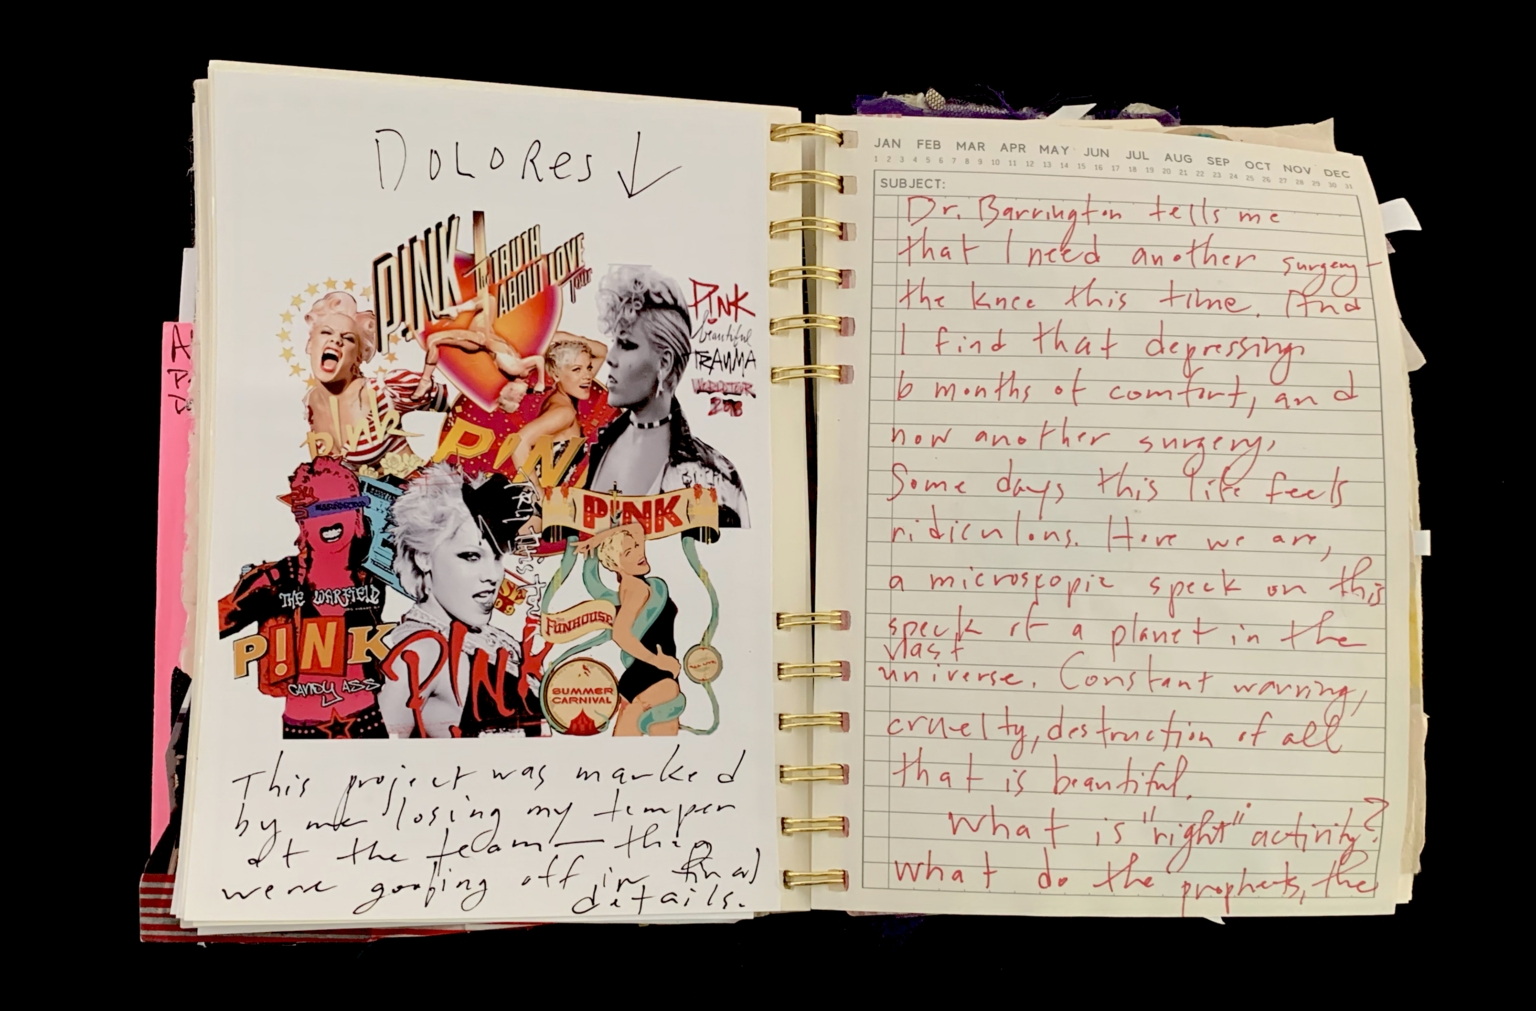 DOLORES ↓
P!NK
THE TRUTH
ABOUT LOVE
TOUR
P!NK
beautiful
TRAUMA
WORLD TOUR
2018
P!nk
P!NK
P!NK
THE WARFIELD
P!NK
CANDY ASS
P!NK
FUNHOUSE
SUMMER
CARNIVAL
This project was marked
by me losing my temper
at the team — they
were goofing off in final
details.
JAN FEB MAR APR MAY JUN JUL AUG SEP OCT NOV DEC
1 2 3 4 5 6 7 8 9 10 11 12 13 14 15 16 17 18 19 20 21 22 23 24 25 26 27 28 29 30 31
SUBJECT:
Dr. Barrington tells me
that I need another surgery -
the knee this time. And
I find that depressing,
6 months of comfort, and
now another surgery,
Some days this life feels
ridiculous. Here we are,
a microscopic speck on this
speck of a planet in the
vast
universe. Constant warring,
cruelty, destruction of all
that is beautiful.
What is "right" activity?
What do the prophets, the